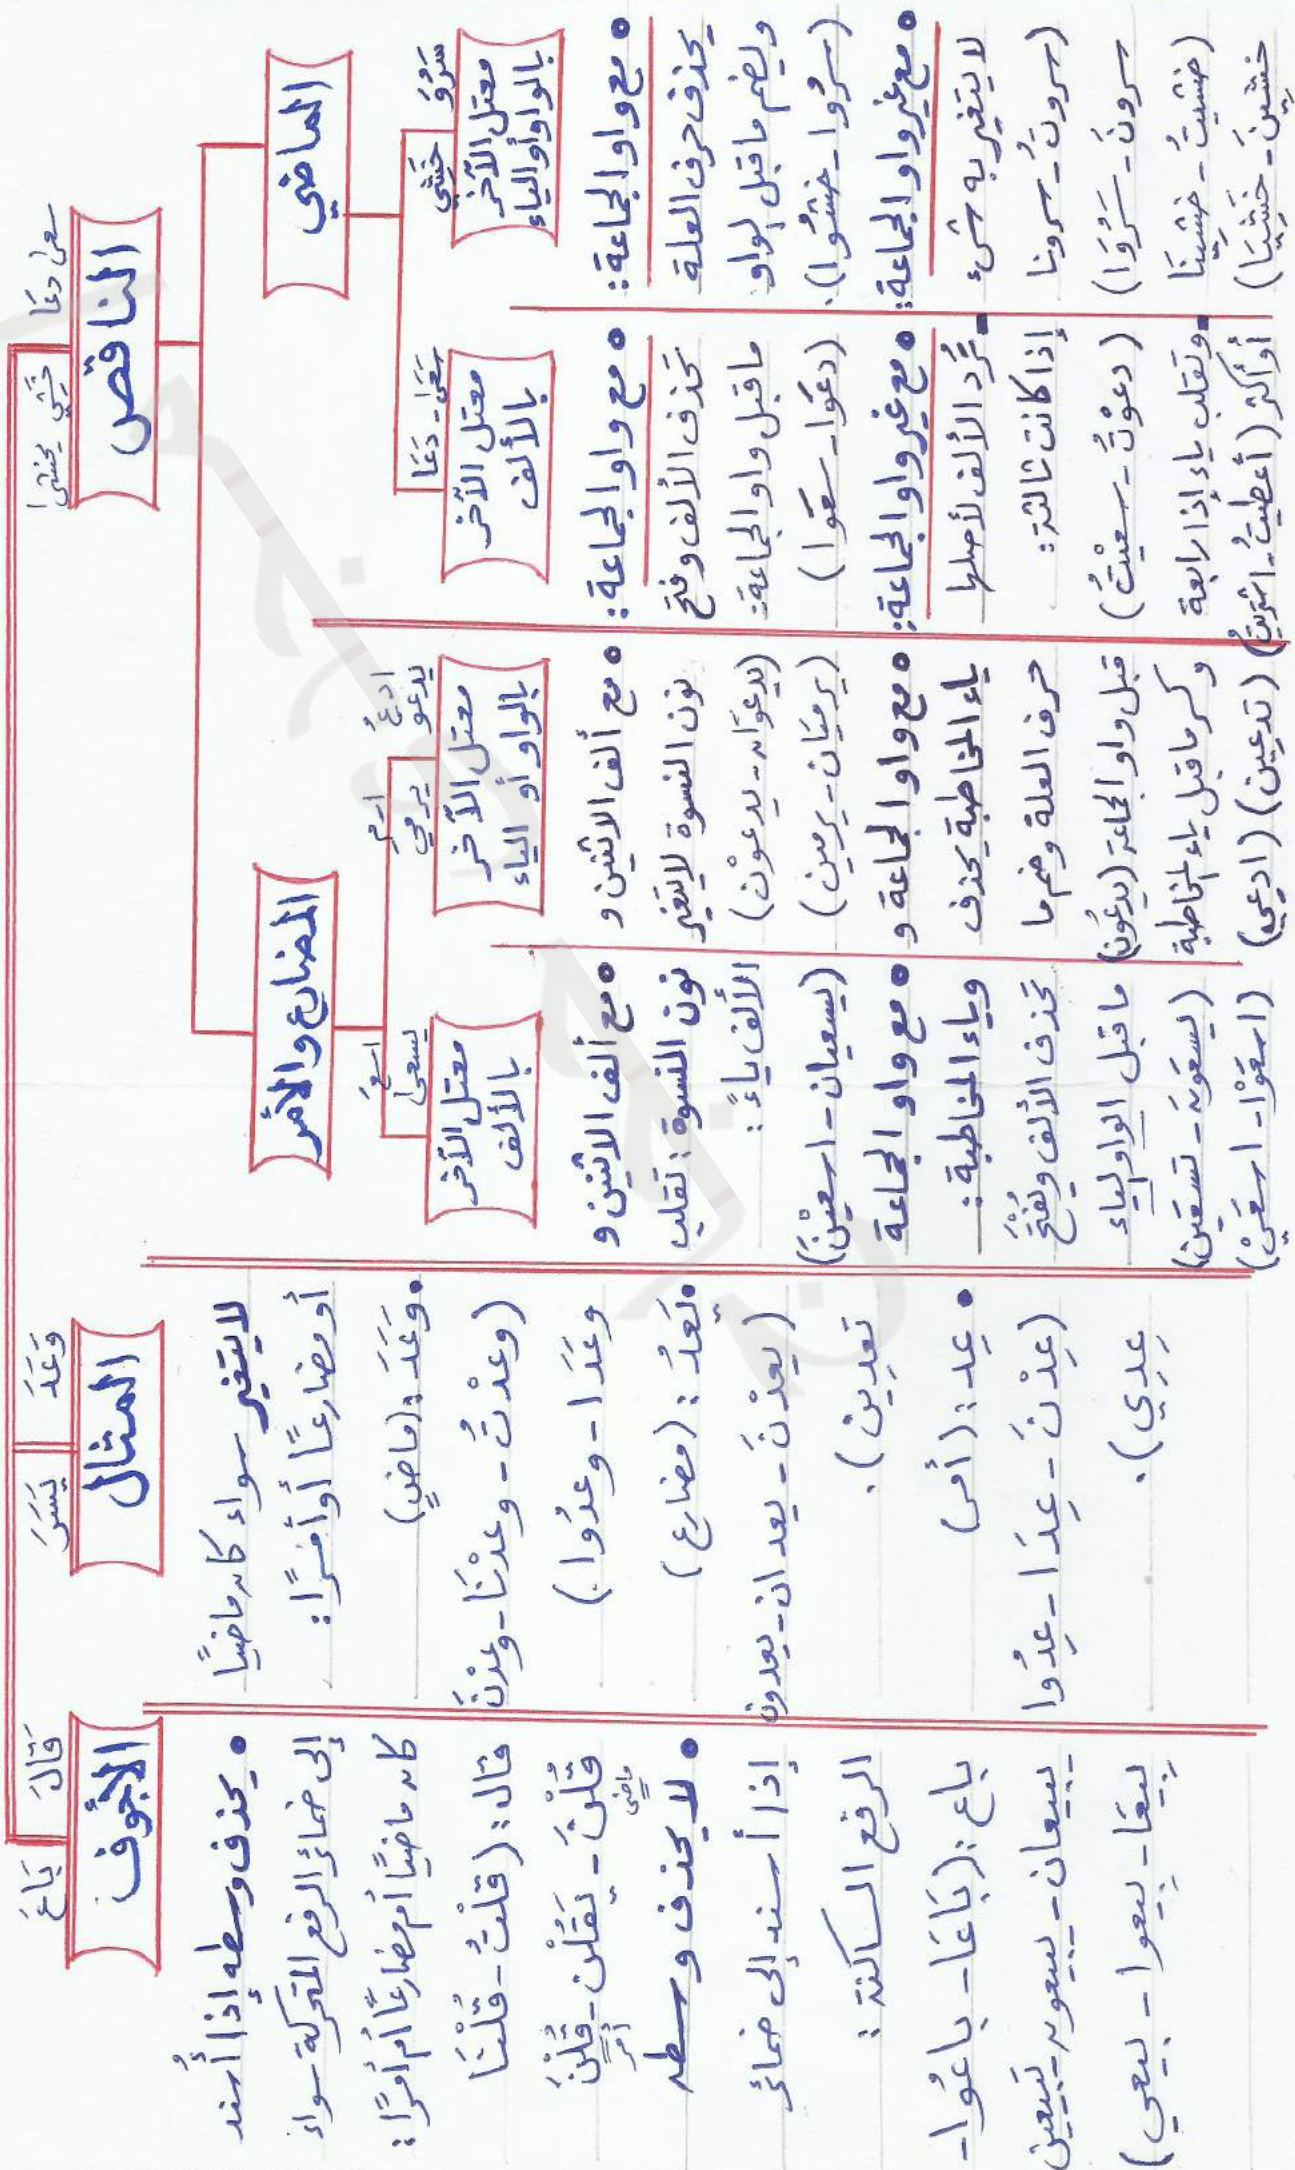 سعى دعَا خَشِي يخشى
الناقص
الماضي
سَرُوَ خَشِي
معتل الآخر
بالواو أو الياء
• مع واو الجماعة:
يحذف حرف العلة
ويضم ما قبل الواو
(سرُوا - خشُوا).
• مع غير واو الجماعة:
لا يتغير به شيء
(سروتُ - سرونا
سرونَ - سَرُوَا)
(خشيتُ - خشينَا
خشِينَ - خَشِيَا)
سَعَى - دَعَا
معتل الآخر
بالألف
• مع واو الجماعة:
تحذف الألف وفتح
ما قبل واو الجماعة:
(دعَوا - سعَوا)
• مع غير واو الجماعة:
- تُرد الألف لأصلها
إذا كانت ثالثة:
(دعوْتُ - سعيْتُ)
- وتقلب ياء إذا رابعة
أو أكثر (أعطيتُ - اشتريتُ)
المضارع والأمر
ادعُ ارمِ
يدعو يرمي
معتل الآخر
بالواو أو الياء
• مع ألف الاثنين و
نون النسوة لا يتغير
(يدعوَان - يدعوْن)
(يرميَان - يرمين)
• مع واو الجماعة و
ياء المخاطبة يحذف
حرف العلة وضم ما
قبل واو الجماعة (يدعُون)
وكسر ما قبل ياء المخاطبة
(تدعين) (ادعي)
اسعَ
يسعى
معتل الآخر
بالألف
• مع ألف الاثنين و
نون النسوة: تقلب
الألف ياءً:
(يسعيان - اسعيْنَ)
• مع واو الجماعة
وياء المخاطبة:
تحذف الألف ويُفتح
ما قبل الواو والياء
(يسعَون - تسعَين)
(اسعَوْا - اسعَيْ)
وَعَدَ يَسَرَ
المثال
لا يتغير سواء كان ماضيًا
أو مضارعًا أو أمرًا:
• وَعَدَ: (ماضٍ)
(وعدْتُ - وعدْنَا - وعدْنَ
وعَدَا - وعدُوا)
• يَعدُ: (مضارع)
(يعدْنَ - يعدان - يعدون
تعدِين).
• عِد: (أمر)
(عِدْنَ - عِدَا - عِدُوا
عِدِي).
قَالَ بَاعَ
الأجوف
• يحذف وسطه إذا أُسند
إلى ضمائر الرفع المتحركة سواء
كان ماضيًا أم مضارعًا أم أمرًا:
قال: (قلْتُ - قُلْنَا
قُلْنَ - يَقُلْن - قُلْنَ
ماضي أمر
• لا يحذف وسطه
إذا أسند إلى ضمائر
الرفع الساكنة:
باع: (بَاعَا - باعُوا -
يبيعان - يبيعون - تبيعين
بِيعَا - بِيعوا - بيعي)